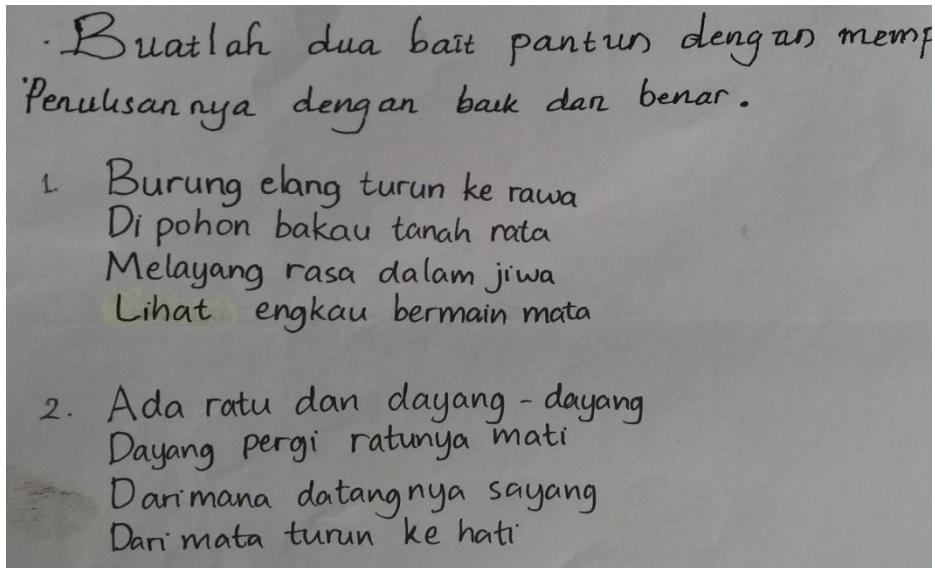 . Buatlah dua bait pantun dengan memp
Penulisannya dengan baik dan benar.
1. Burung elang turun ke rawa
Di pohon bakau tanah rata
Melayang rasa dalam jiwa
Lihat engkau bermain mata
2. Ada ratu dan dayang-dayang
Dayang pergi ratunya mati
Darimana datangnya sayang
Dari mata turun ke hati